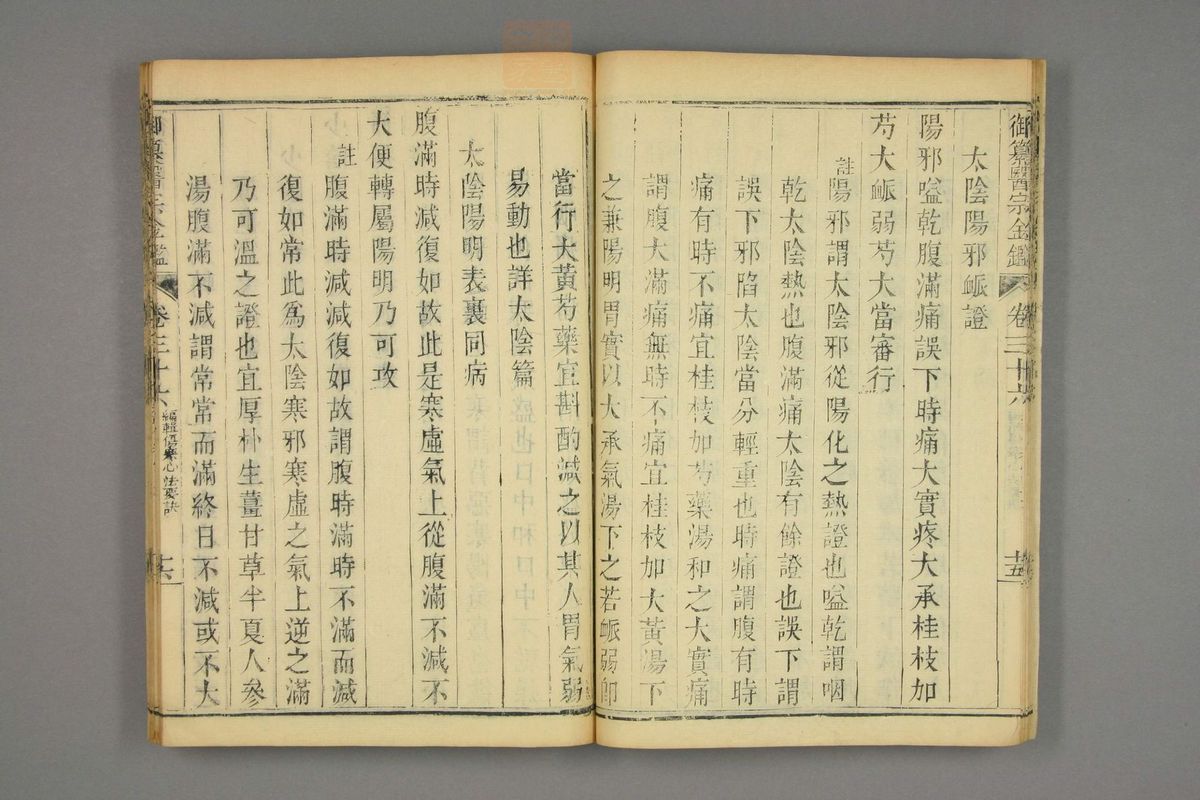 御纂醫宗金鑑 卷三十六 十五
太陰陽邪脈證
陽邪嗌乾腹滿痛誤下時痛大實疼大承桂枝加
芍大脈弱芍大當審行
註陽邪謂太陰邪從陽化之熱證也嗌乾謂咽
乾太陰熱也腹滿痛太陰有餘證也誤下謂
誤下邪陷太陰當分輕重也時痛謂腹有時
痛有時不痛宜桂枝加芍藥湯和之大實痛
謂腹大滿痛無時不痛宜桂枝加大黃湯下
之兼陽明胃實以大承氣湯下之若脈弱即
當行大黃芍藥宜斟酌減之以其人胃氣弱
易動也詳太陰篇
太陰陽明表裏同病
腹滿時減復如故此是寒虛氣上從腹滿不減不
大便轉屬陽明乃可攻
註腹滿時減減復如故謂腹時滿時不滿而減
復如常此爲太陰寒邪寒虛之氣上逆之滿
乃可溫之證也宜厚朴生薑甘草半夏人參
湯腹滿不減謂常常而滿終日不減或不大
御纂醫宗金鑑 卷三十六 編輯傷寒心法要訣 十六